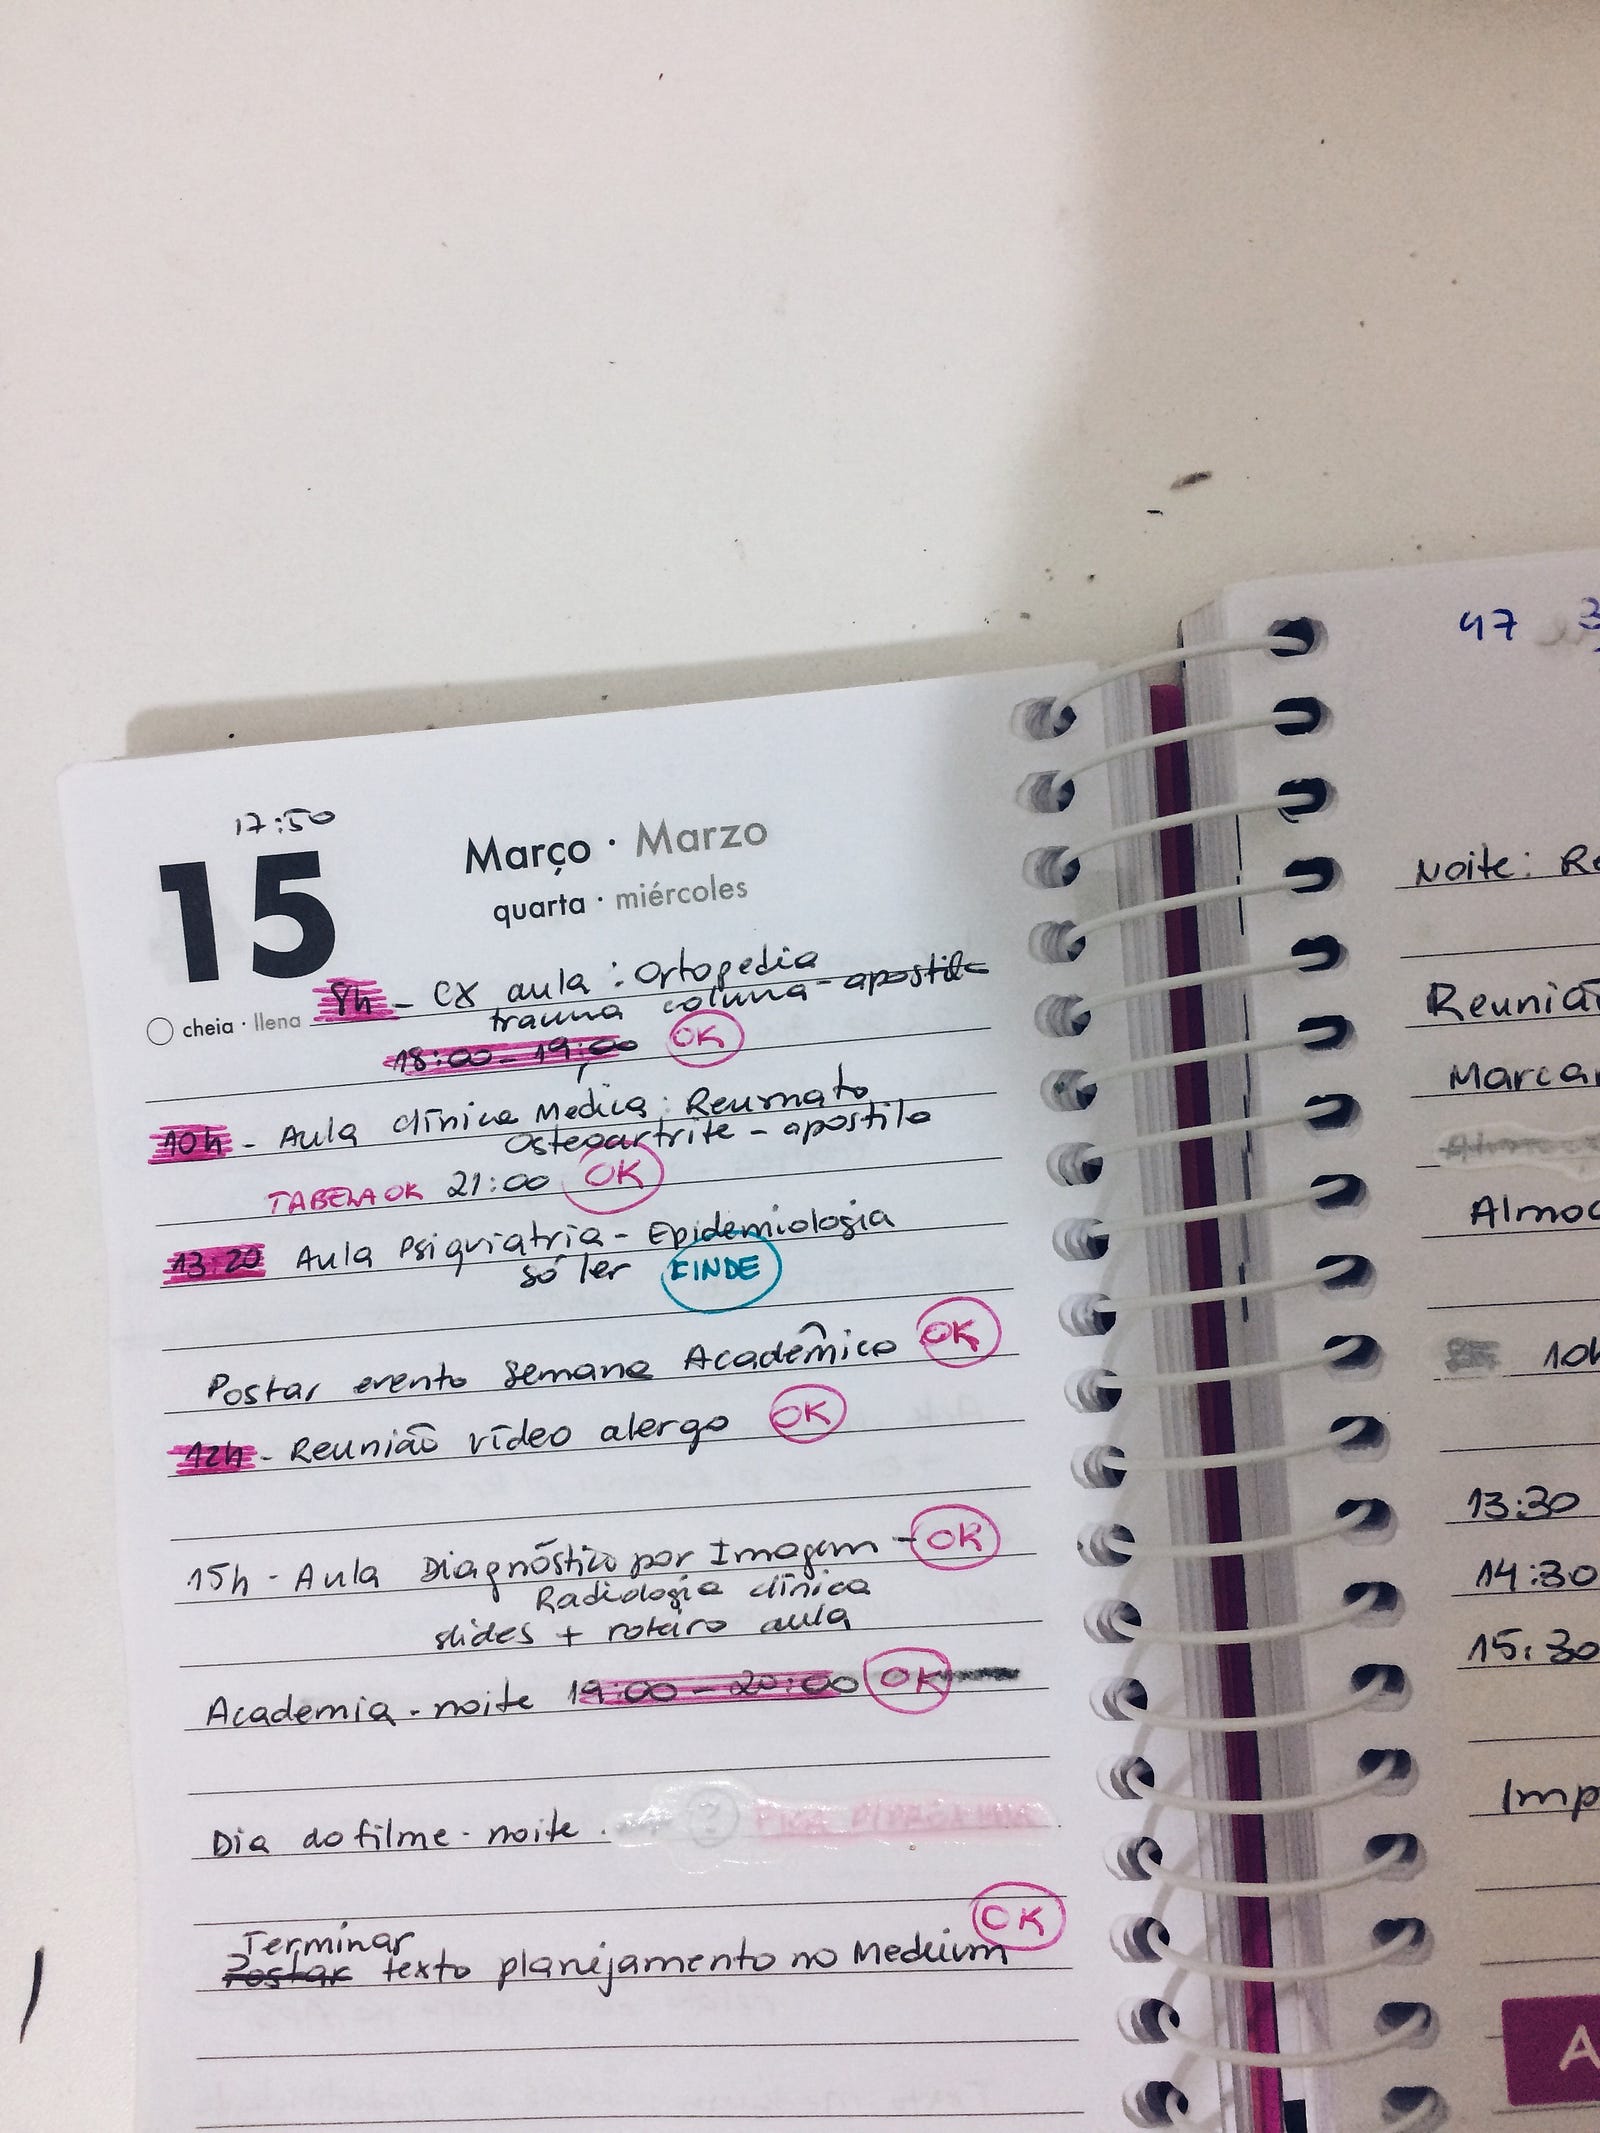 17:50
15
Março · Marzo
quarta · miércoles
cheia · llena
8h - CX aula : Ortopedia
trauma coluna - apostila
18:00 - 19:00 OK
10h - Aula clínica Médica: Reumato
Osteoartrite - apostila
TABELA OK 21:00 OK
13:20 Aula Psiquiatria - Epidemiologia
só ler FINDE
Postar evento Semana Acadêmica OK
12h - Reunião vídeo alergo OK
15h - Aula Diagnóstico por Imagem - OK
Radiologia clínica
slides + roteiro aula
Academia - noite 19:00 - 20:00 OK
Dia do filme - noite .
Terminar
Postar texto planejamento no Medium OK
47 3
Noite: Re
Reuniã
Marcar
Almoç
10h
13:30
14:30
15:30
Imp
A